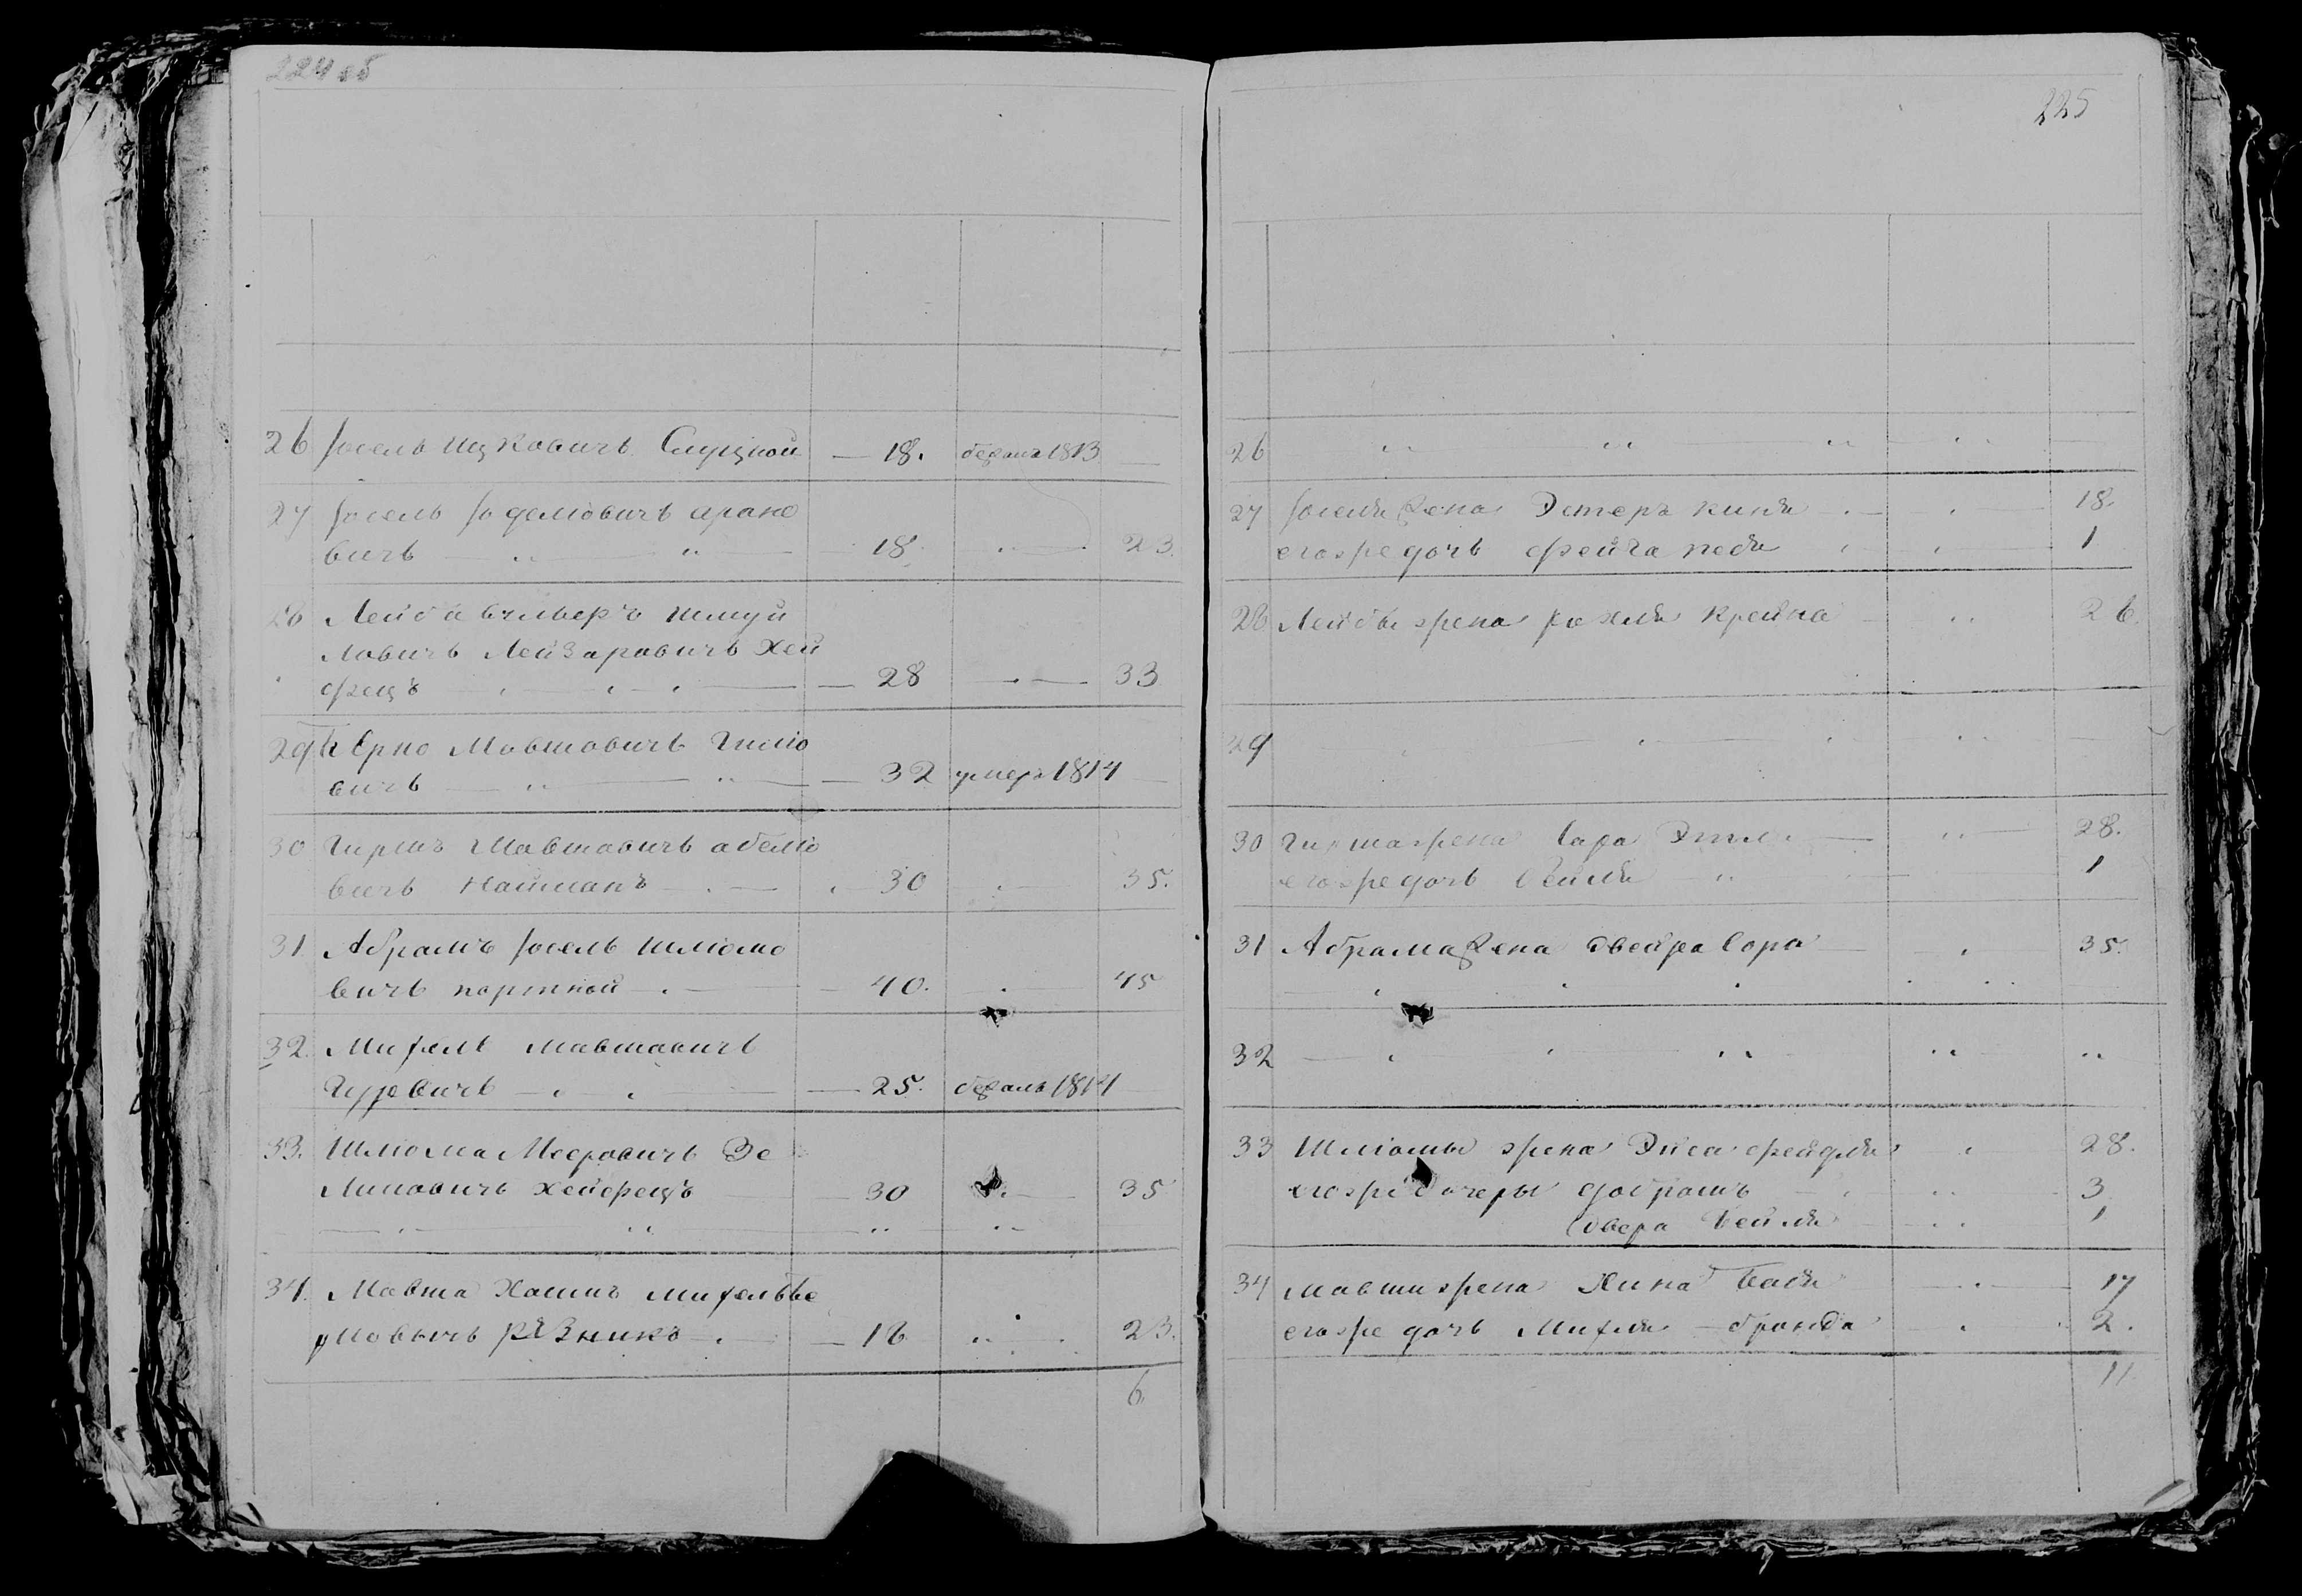 224 об
26 Іосель Ицковичъ Слуцкой 18. бежалъ 1813
27 Іосель Іоделіовичъ арано
вичъ 18. 23.
28 Лейба вильверъ шмуй
ловичъ Лейзаровичъ Хей
фецъ 28 33
29 Мавшовичъ
вичъ 32 умеръ 1814
30 Гиршъ Мавшовичъ абеліо
вичъ Найманъ 30 35.
31 Абрамъ Іосель шліомо
вичъ портной 40. 45
32. Михель мавшовичъ
Гуревичъ 25. бежалъ 1814
33. Шліома Мееровичъ Зе
ликовичъ хейфецъ 30 35
34. Мавша Хаимъ михельве
ліовычъ рѣзникъ 18 23.
6
225
26
27 Іоселя жена Эстеръ киня 18.
его же дочь фейга песя 1
28 Лейбы жена рохля крейна 26.
29
30 гирша жена Сара Этля 28.
его же дочь бейля 1
31 Абрама жена двейра Сора 35.
32
33 Шліомы жена Эйса фрейдля 28.
его же дочеры добрашъ 3
двера бейля 1
34 мавши жена Хина бася 17
его же дочь Михля бронда 2.
11